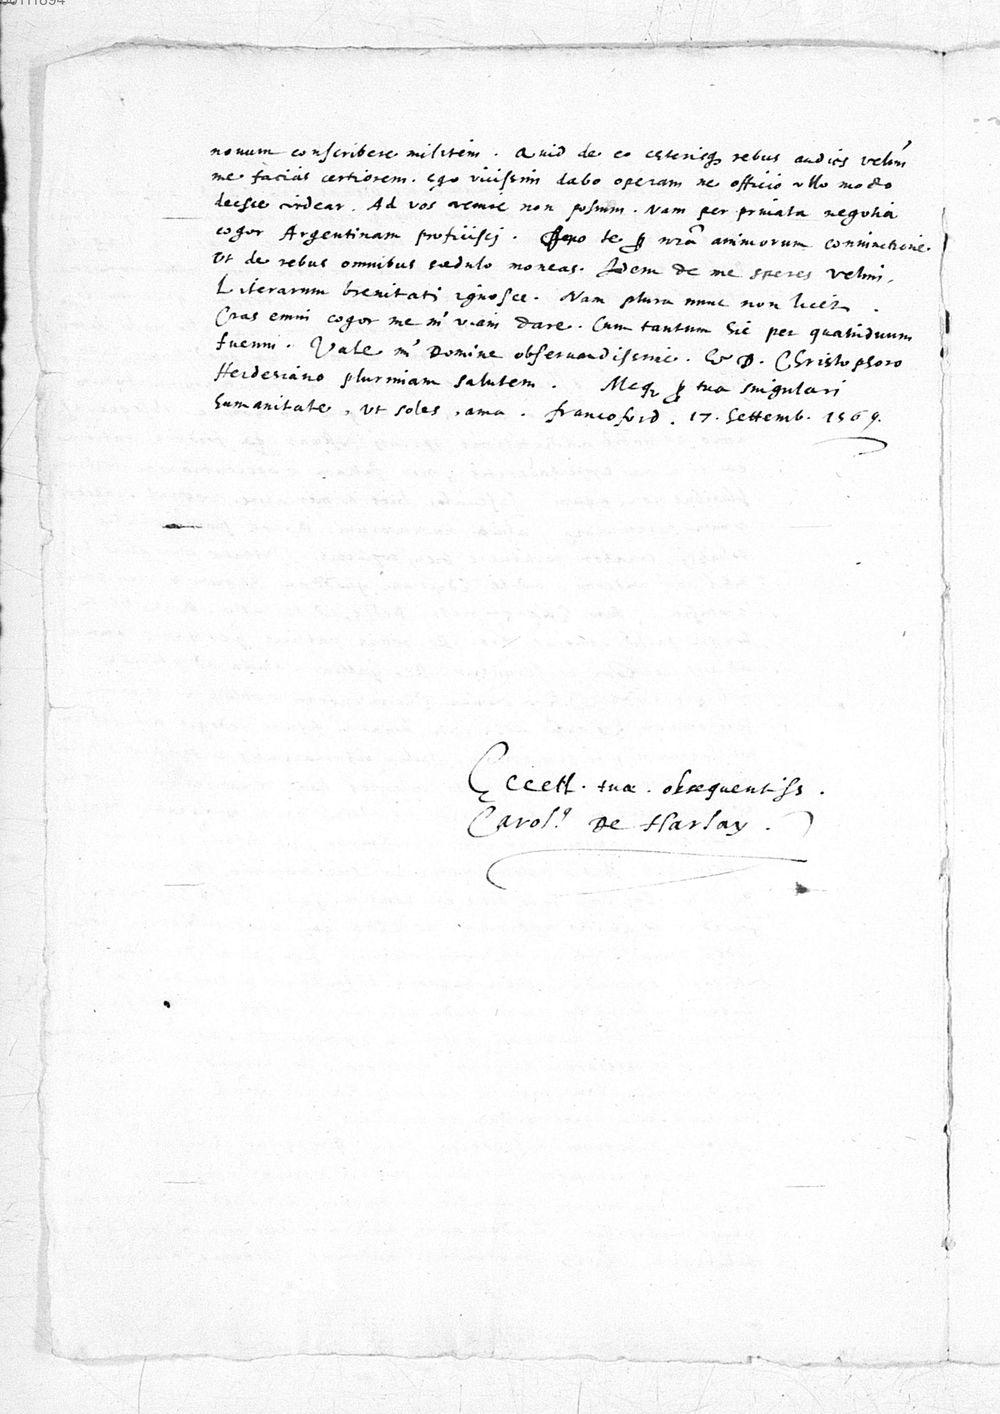 nouum conscribere militem. Quid de eo ceterisq3 rebus audies velim
me facias certiorem. Ego vicissim dabo operam ne officio ullo modo
deesse videar. Ad vos venire non possum. Nam per priuata negotia
cogor Argentinam proficisci. Oro te p nrã animorum coniunctione
Vt de rebus omnibus sedulo moneas. Idem de me speres velim.
Literarum breuitati ignosce. Nam plura nunc non licet.
Cras enim cogor me in viam dare. Cum tantum hic per quatriduum
fuerim. Vale mi Domine obseruandissime. Et D. Christophoro
Herdesiano plurimam salutem. Meq3 p tua singulari
humanitate, vt soles, ama. Francoford. 17. Settemb. 1569.
Eccell. tuæ. obsequentiss.
Carol9 De Harlay.